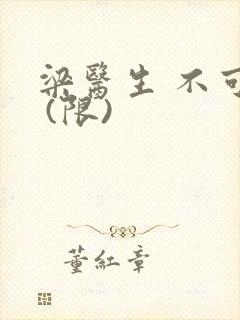 梁醫生 不可
(限)
董紅章